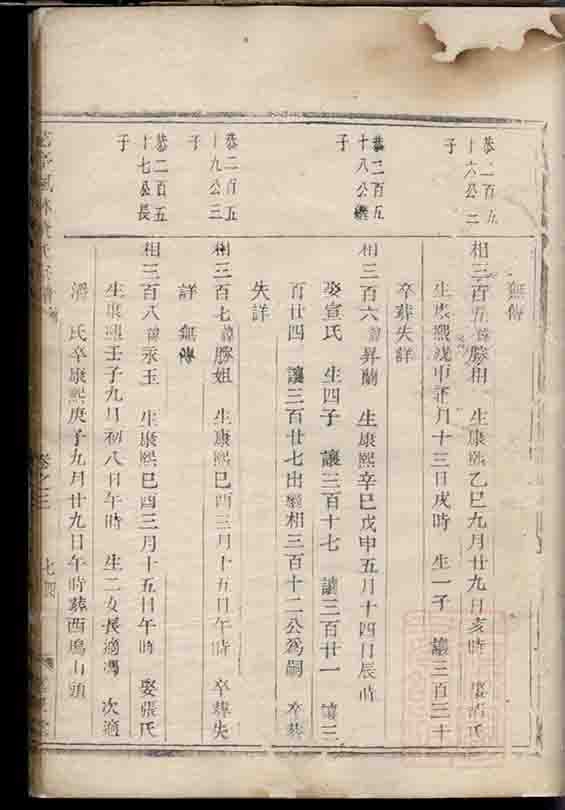 無傳
恭二百五
十六公二
子
相三百五諱勝相 生康熙乙巳九月廿九日亥時 娶 氏
生康熙戊申正月十三日戌時 生一子 讓三百三十
卒葬失詳
恭二百五
十八公繼
子
相三百六諱昇蘭 生康熙辛巳戊申五月十四日辰時
娶宣氏 生四子 讓三百十七 讓三百廿一 讓三
百廿四 讓三百廿七出繼相三百十二公爲嗣 卒葬
失詳
恭二百五
十九公三
子
相三百七諱勝姐 生康熙巳酉三月十五日午時 卒葬失
詳 無傳
恭二百五
十七公長
子
相三百八諱永玉 生康熙巳酉三月十五日午時 娶張氏
生康熙壬子九月初八日午時 生二女長適馮 次適
潘 氏卒康熙庚子九月廿九日午時葬西塢山頭
卷之三
七四